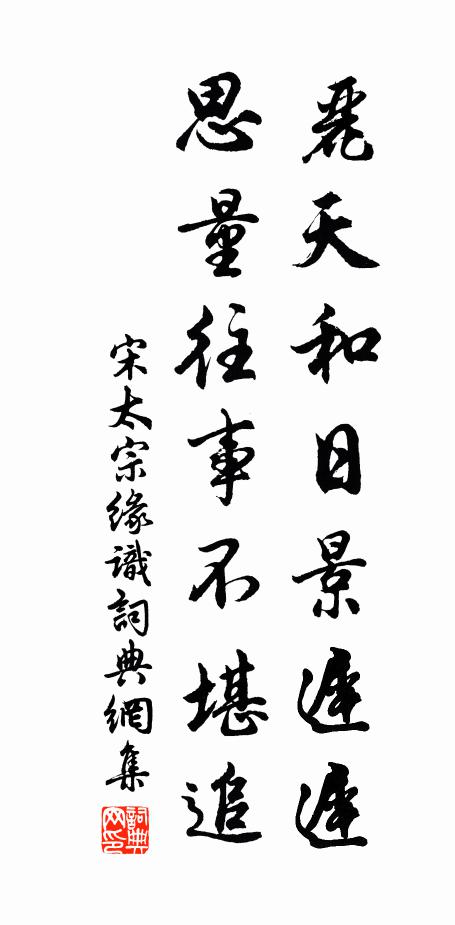 麗天和日景遲遲
思量往事不堪追
宋太宗緣識詞典網集
詞典網印